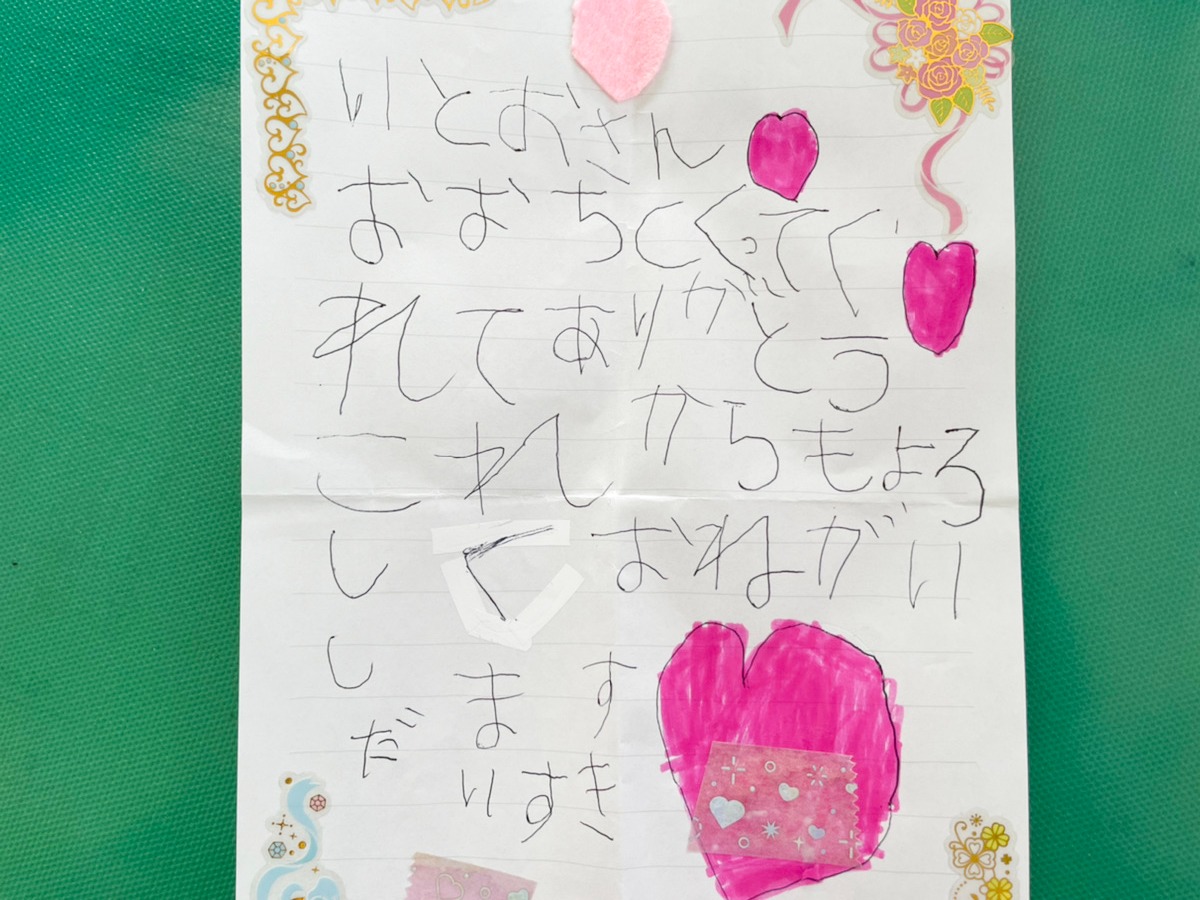 いとおさん
おおちつくってく
れてありがとう
これからもよろ
しくおねがい
します
だいすき